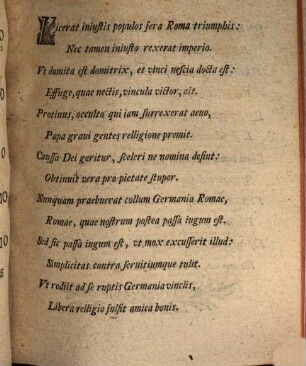 Vicerat iniustis populos fera Roma triumphis:
Nec tamen iniusto rexerat imperio.
Vt domita est domitrix, et vinci nescia docta est:
Effuge, quae nectis, vincula victor, ait.
Protinus, occulto qui iam surrexerat aeuo,
Papa graui gentes relligione premit.
Caussa Dei geritur, sceleri ne nomina desint:
Obtinuit vera pro pietate stupor.
Nunquam praebuerat collum Germania Romae,
Romae, quae nostrum postea passa iugum est.
Sed sic passa iugum est, vt mox excusserit illud:
Simplicitas contra seruitiumque tulit.
Vt rediit ad se ruptis Germania vinclis,
Libera relligio fulsit amica bonis.